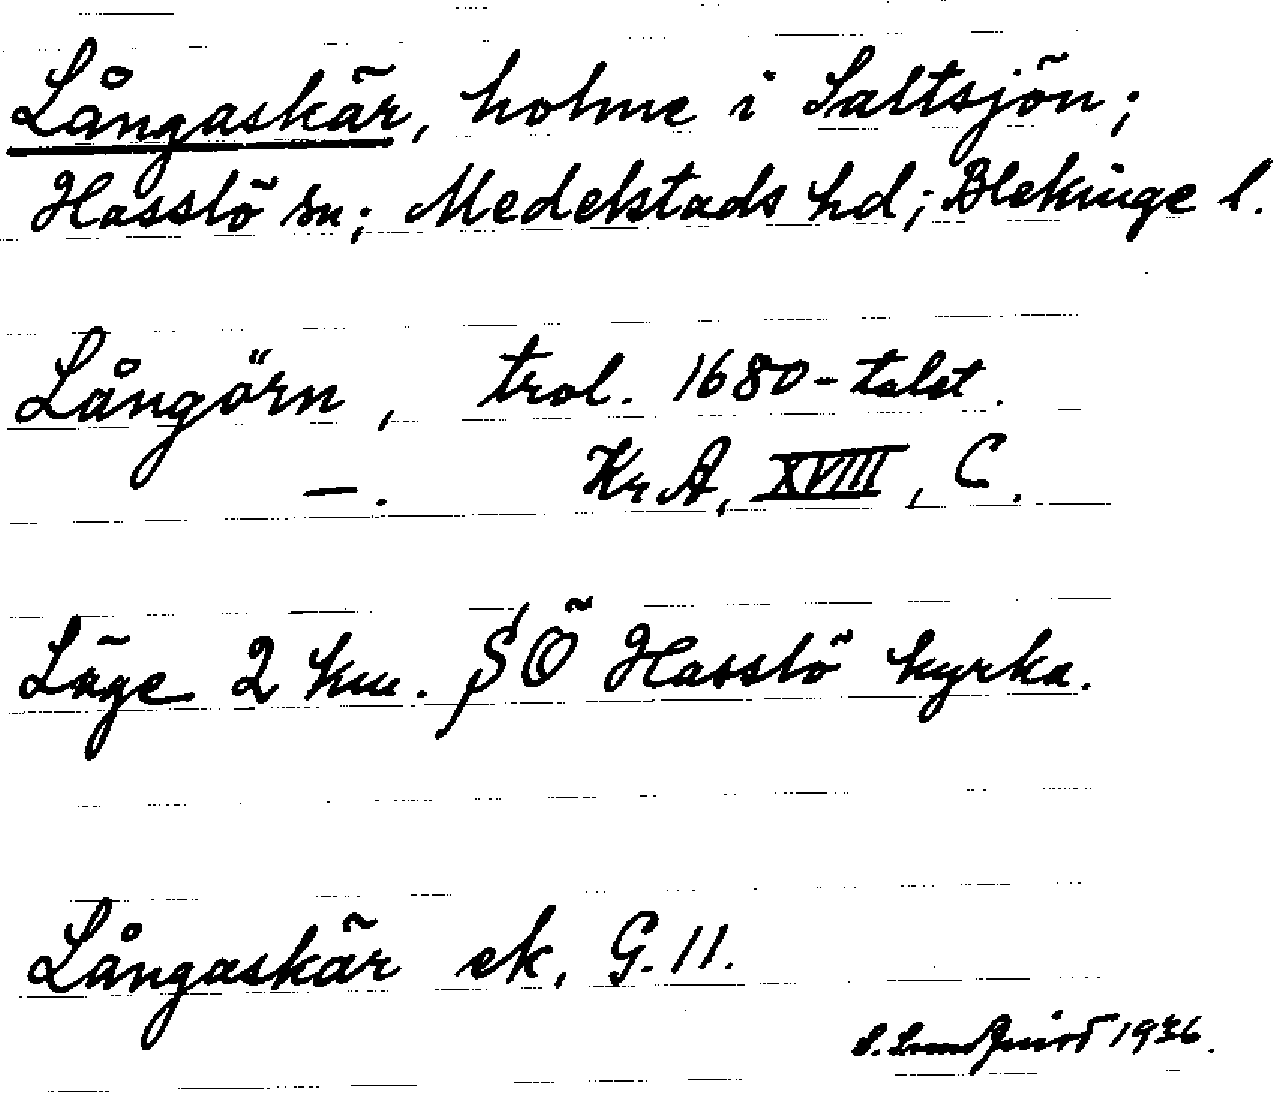 Långaskär, holme i Saltsjön;
Hasslö sn; Medelstads hd; Blekinge l.
Långörn, trol. 1680-talet.
—. Kr A, XVIII, C.
Läge 2 km. SÖ Hasslö kyrka.
Långaskär ek. G. 11.
S. Lundquist 1936.